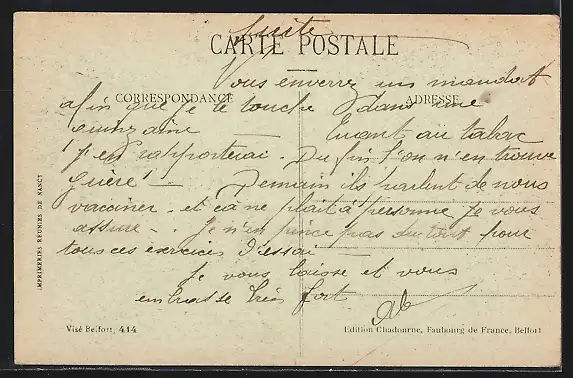 Suite
CARTE POSTALE
Vous enverrez un mandat
CORRESPONDANCE
ADRESSE
afin que je le touche dans une
quinzaine — Quant au tabac
j'en rapporterai. Du fin l'on n'en trouve
guère! — Demain ils parlent de nous
vacciner - et ça ne plait à personne je vous
assure - . Je n'en pince pas surtout pour
tous ces exercices d'essai —
Je vous laisse et vous
embrasse très fort
IMPRIMERIES REUNIES DE NANCY
Visé Belfort, 414
Edition Chadourne, Faubourg de France, Belfort